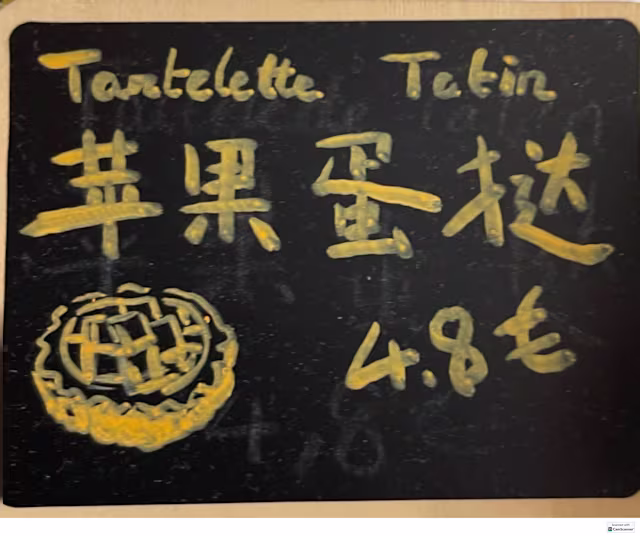 Tartelette Tatin
苹果蛋挞
4.8毛